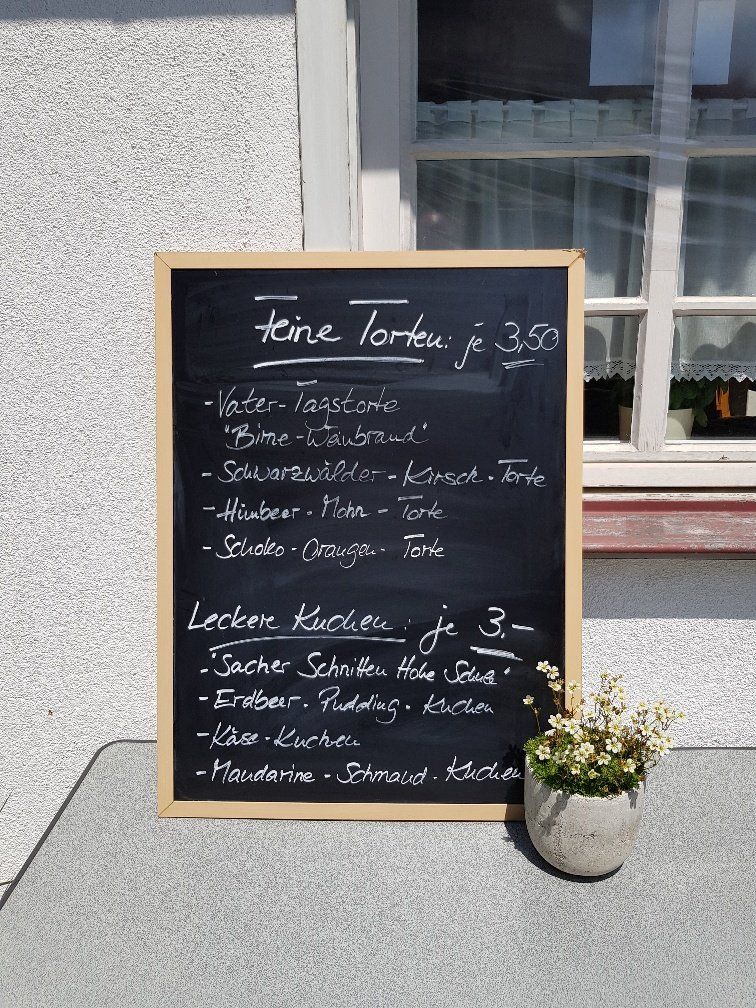 feine Torten: je 3,50
- Vater-Tagstorte
"Birne-Weinbrand"
- Schwarzwälder-Kirsch-Torte
- Himbeer-Mohn-Torte
- Schoko-Orangen-Torte
Leckere Kuchen: je 3.-
- "Sacher Schnitten Hohe
- Erdbeer-Pudding-Kuchen
- Käse-Kuchen
- Mandarine-Schmand-Kuchen